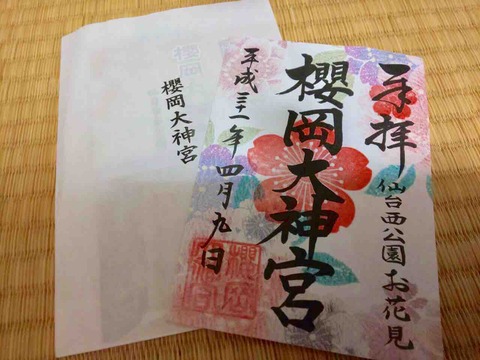 奉拝
仙台西公園お花見
櫻岡大神宮
平成三十一年四月九日
櫻岡大神宮